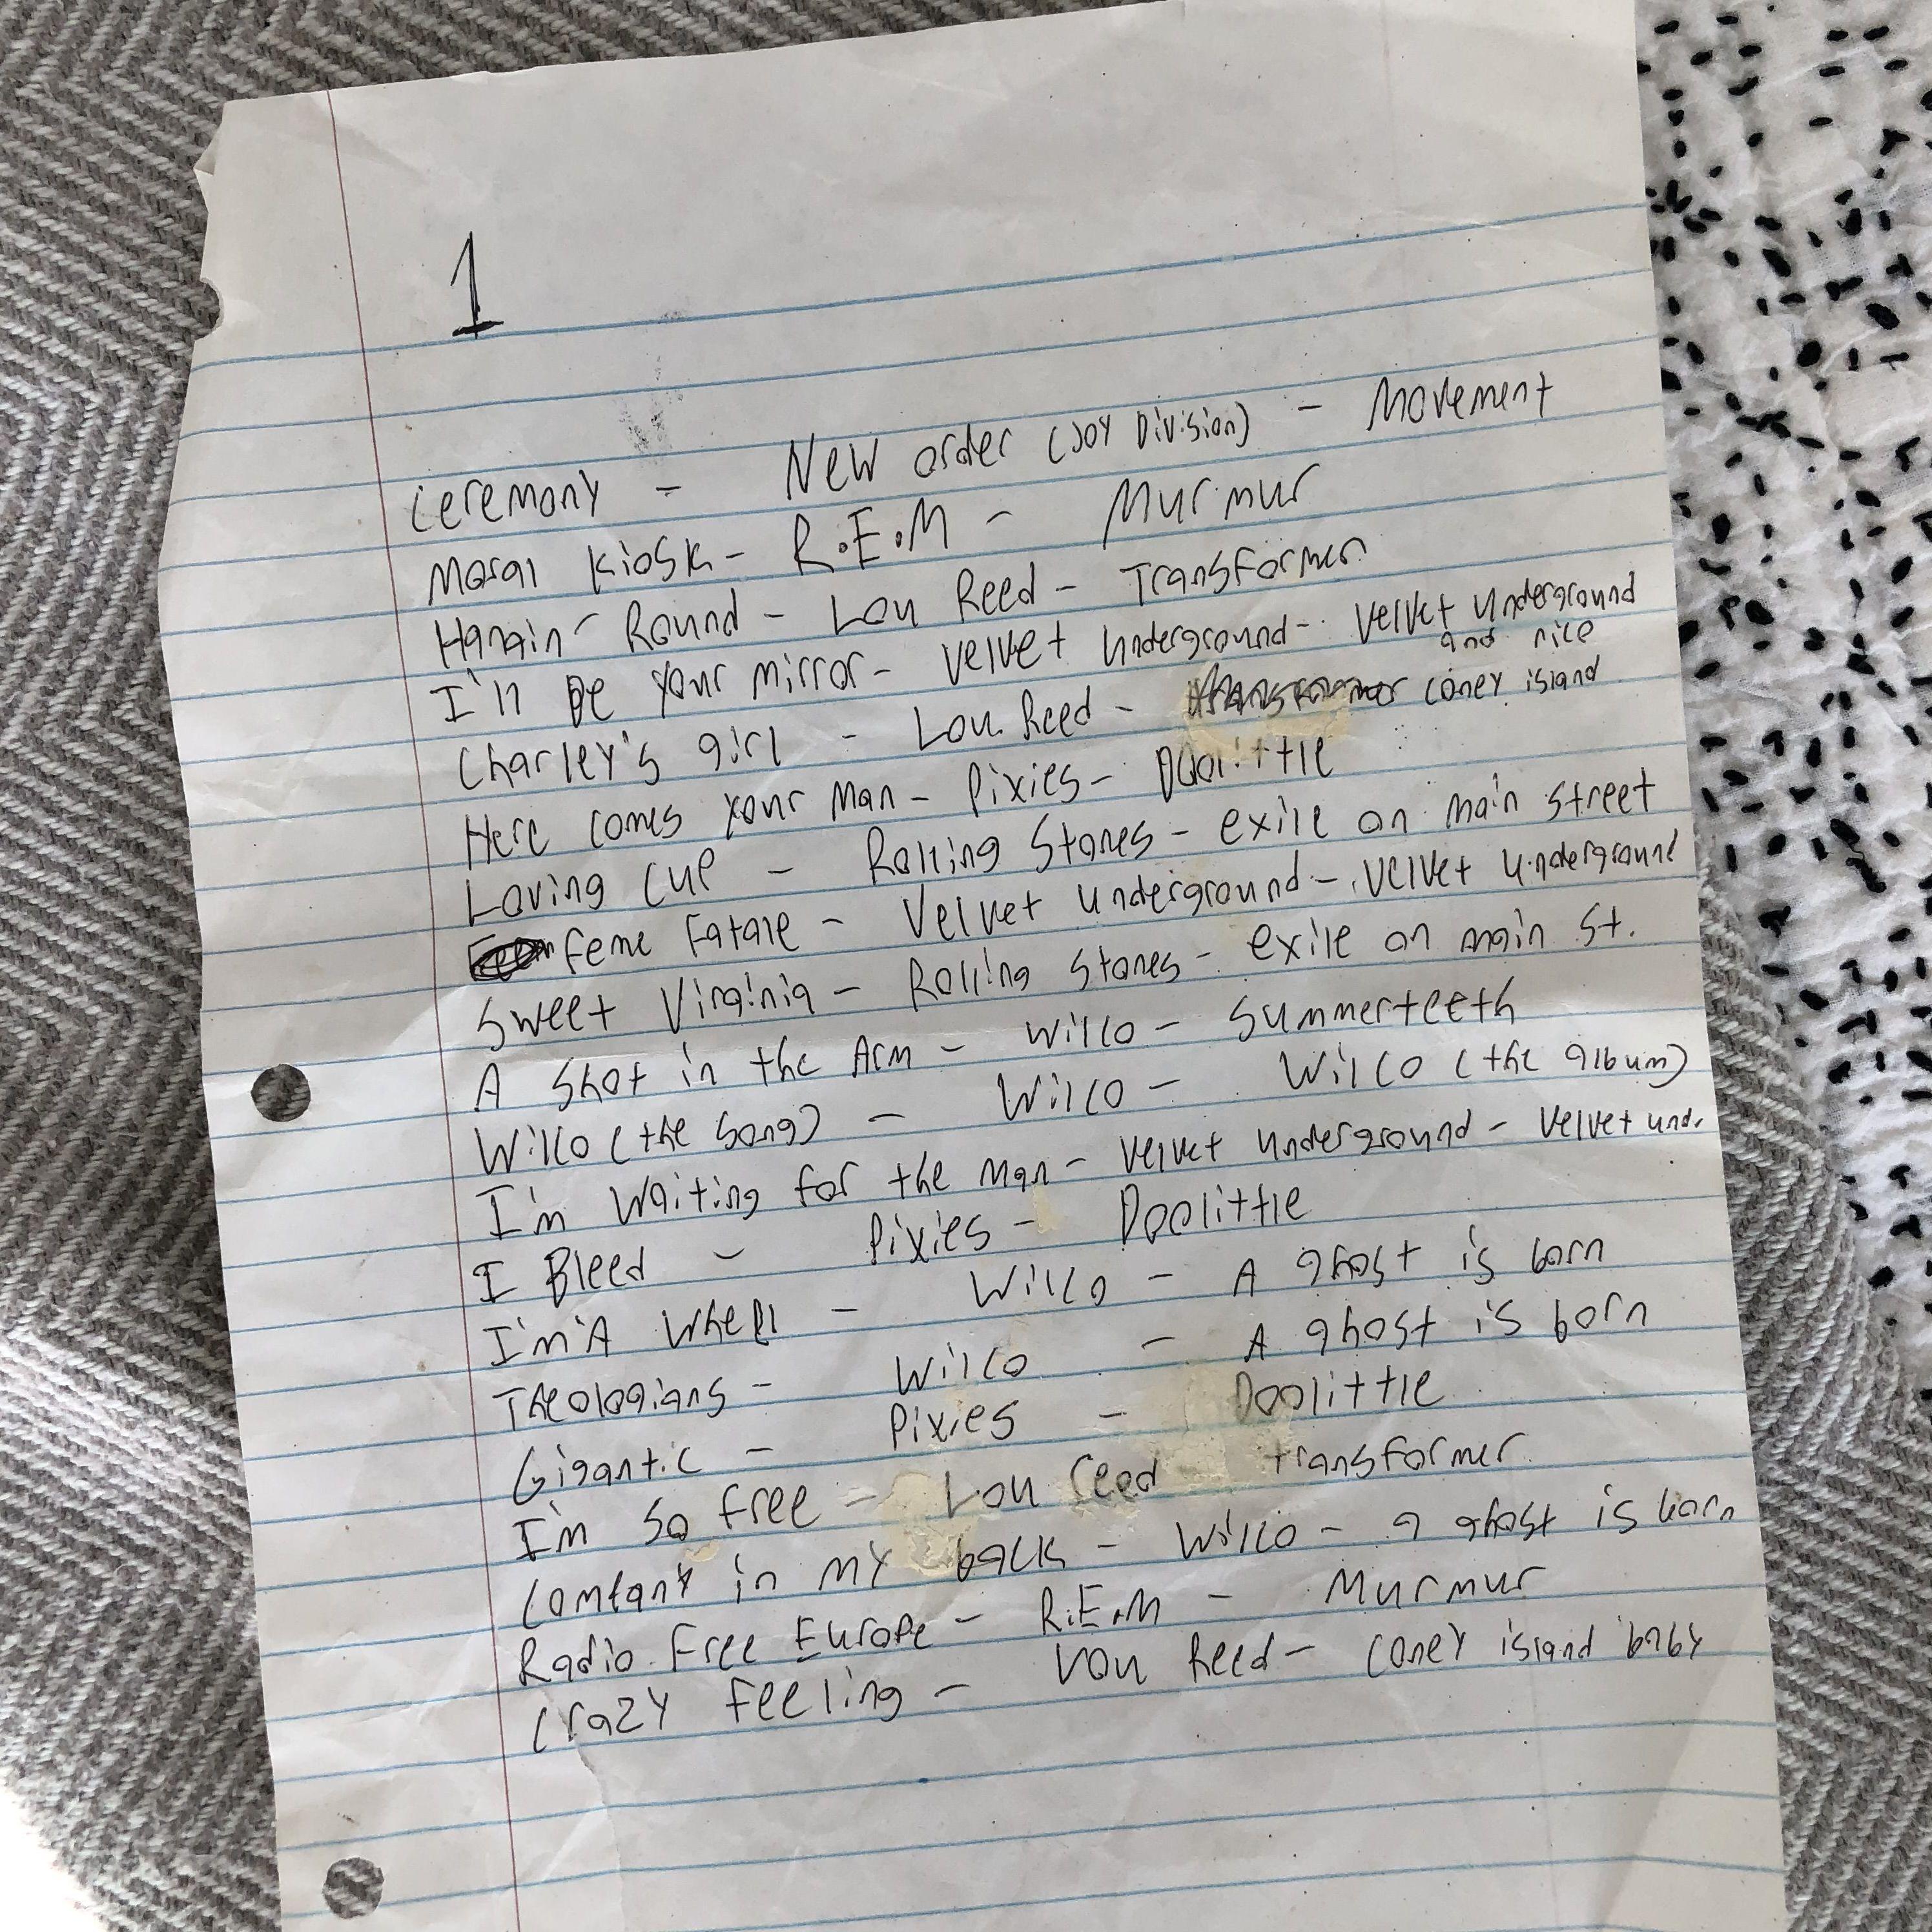 1
Ceremony - New order (Joy Division) - Movement
Moral Kiosk - R.E.M - Murmur
Hangin' Round - Lou Reed - Transformer
I'll Be your mirror - Velvet Underground - Velvet Underground
and nico
Charley's girl - Lou Reed - transformer coney island
Here comes your Man - Pixies - Doolittle
Loving Cup - Rolling Stones - exile on main street
feme Fatale - Velvet Underground - Velvet Underground
Sweet Virginia - Rolling Stones - exile on main St.
A Shot in the Arm - Wilco - Summerteeth
Wilco (the song) - Wilco - Wilco (the album)
I'm Waiting for the Man - Velvet Underground - Velvet und.
I Bleed - Pixies - Doolittle
I'm A Wheel - Wilco - A ghost is born
Theologians - Wilco - A ghost is born
Gigantic - Pixies - Doolittle
I'm So free - Lou reed - transformer
in my back - Wilco - a ghost is born
Radio Free Europe - R.E.M - Murmur
Crazy feeling - Lou Reed - Coney island baby